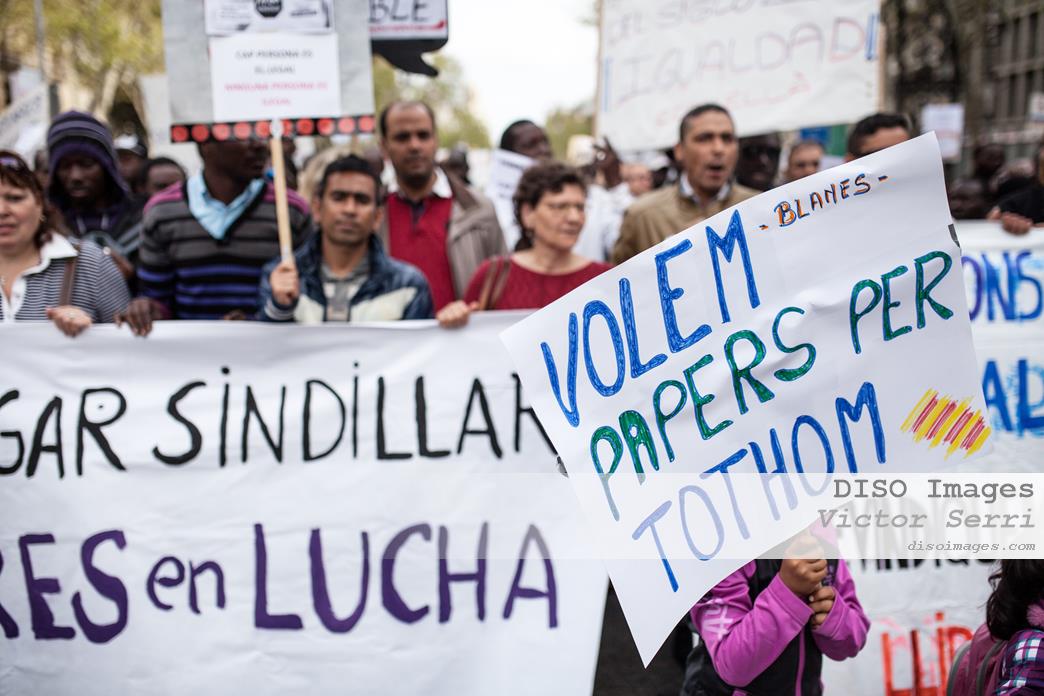 BLE
CAP PERSONA ES
IL·LEGAL
NINGUNA PERSONA ES
ILEGAL
DEL SIGLO
¡IGUALDAD!
- BLANES -
VOLEM
PAPERS PER
TOTHOM
GAR SINDILLAR
RES en LUCHA
ONS
AD
DISO Images
Victor Serri
disoimages.com